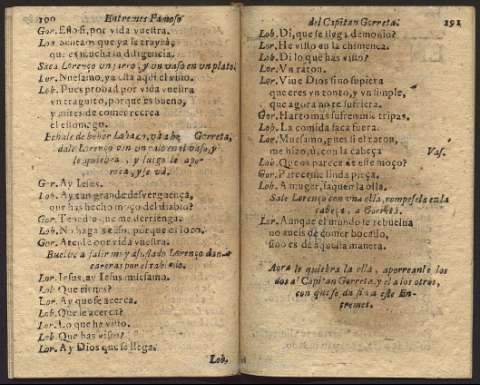 190 Entremes Famoso
Gor. Esso si, por vida vuestra.
Lor. que ya se trayra,
que es mucha la diligencia.
Saca Lorenço un jarro, y un vaso en un plato.
Lor. Nuesamo, ya està aqui el vino.
Lob. Pues probad por vida vuestra
un traguito, porque es bueno,
y antes de comer recrea
el estomago.
Echale de beber Gorreta,
dale Lorenço en el vaso, y
le quiebra, y luego le apo-
rrea, y se và.
Gor. Ay Iesus.
Lob. Ay tan grande desverguença,
que has hecho moço del diablo?
Gor. Tenedlo que me derrienga.
Lob. No haga caso, porque es loco.
Gor. Atento por vida vuestra.
Buelve a salir muy assustado Lorenço dan-
carreras por el tablado.
Lor. Iesus, ay Iesus muesamo.
Lob. Que tienes?
Lor. Ay que se acerca.
Lob. Que se acerca?
Lor. Lo que he visto.
Lob. Que has visto?
Lor. Ay Dios que se llega.
Lob.
del Capitan Gorreta. 191
Lob. Di, que se llega demonio?
Lor. He visto en la chimenea.
Lob. Di lo que has visto?
Lor. Un raton.
Lob. Vive Dios sino supiera
que eres un tonto, y un simple,
que agora no te sufriera.
Gor. Harto mas sufren mis tripas.
Lob. La comida saca fuera.
Lor. Muesamo, pues si el raton,
me hizo, ù, con la cabeça Vas.
Lob. Que os parece de este moço?
Gor. Pareceme linda pieça.
Lob. A muger, saquen la olla.
Sale Lorenço con una olla, rompesela en la
cabeça, a Gorreta.
Lor. Aunque el mundo se rebuelva
no aveis de comer bocado,
sino es de aquesta manera.
Aora le quiebra la olla, aporreanle los
dos al Capitan Gorreta, y èl a los otros,
con que se dà fin a este En-
tremes.